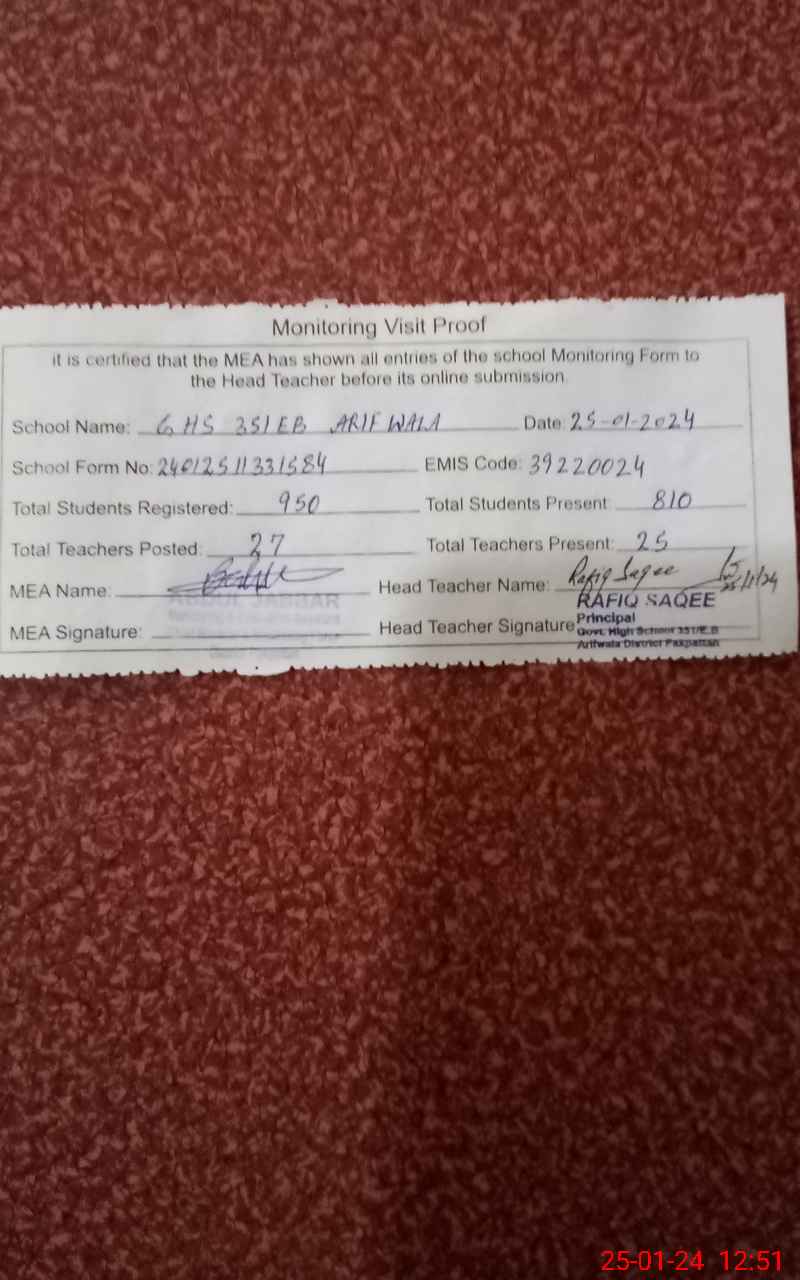 Monitoring Visit Proof
it is certified that the MEA has shown all entries of the school Monitoring Form to
the Head Teacher before its online submission.
School Name: GHS 351 EB ARIFWALA Date: 25-01-2024
School Form No: 24012511331584 EMIS Code: 39220024
Total Students Registered: 950 Total Students Present: 810
Total Teachers Posted: 27 Total Teachers Present: 25
MEA Name: Head Teacher Name: Rafiq Saqee 25/1/24
ABDUL JABBAR RAFIQ SAQEE
MEA Signature: Head Teacher Signature Principal
Govt. High School 351/E.B
Arifwala District Pakpattan
25-01-24 12:51